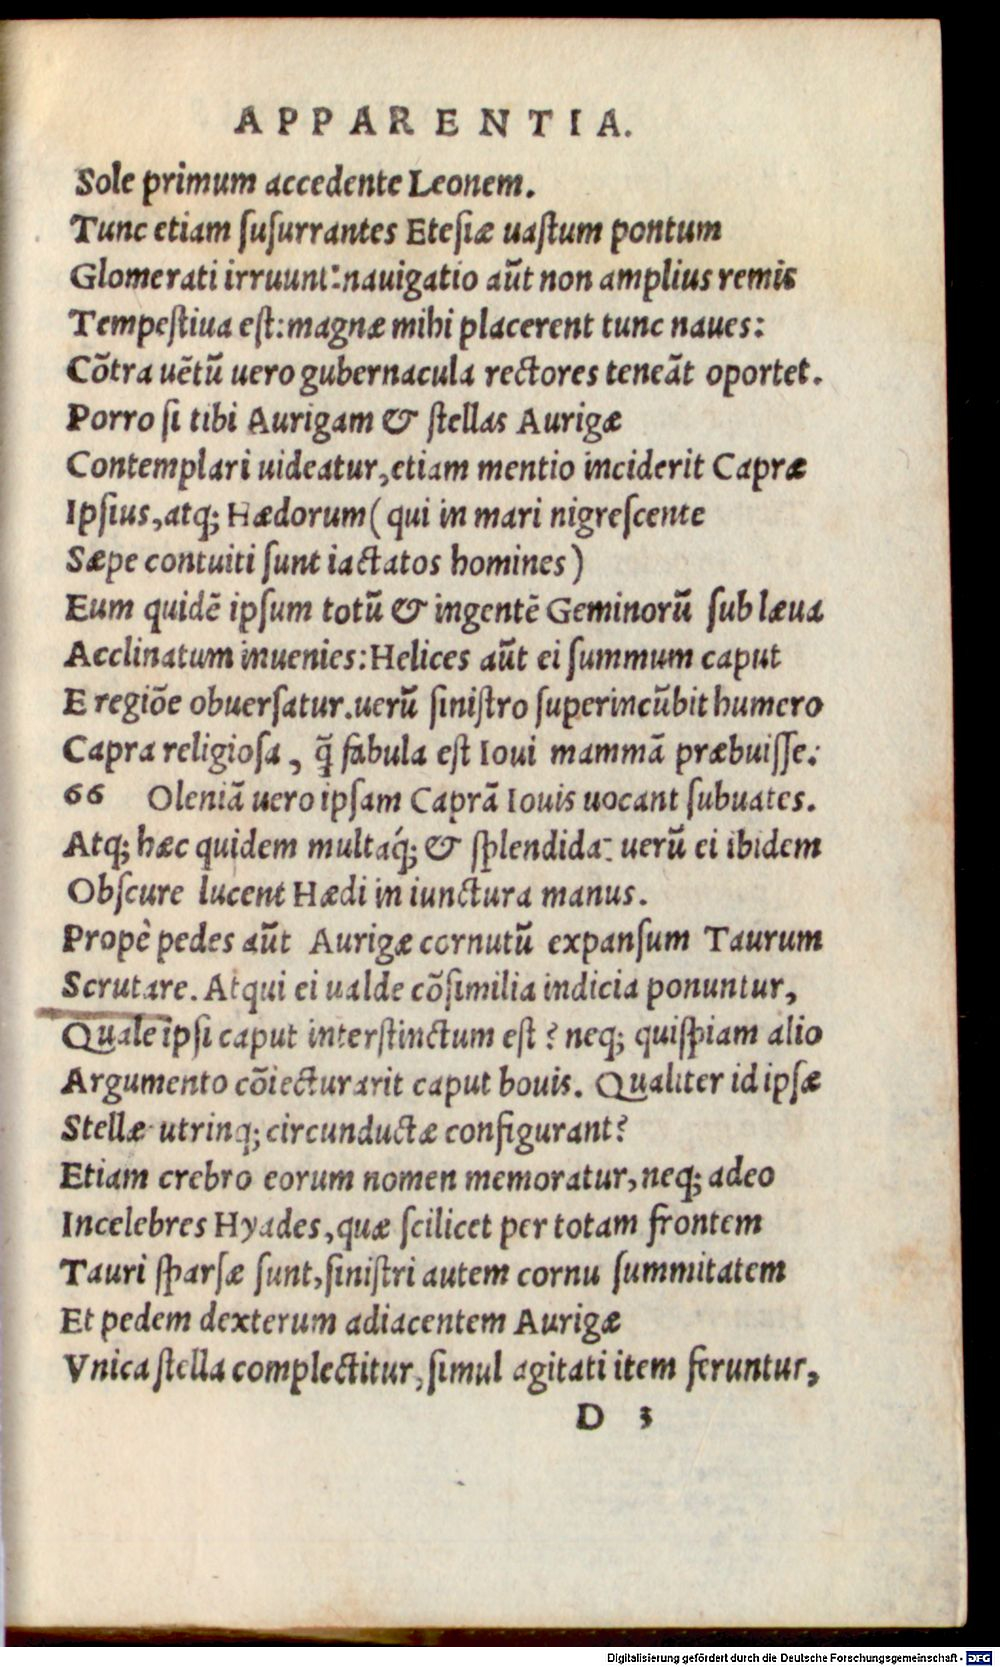 APPARENTIA.
Sole primum accedente Leonem.
Tunc etiam ſuſurrantes Eteſiæ uaſtum pontum
Glomerati irruunt: nauigatio aũt non amplius remis
Tempeſtiua eſt: magnæ mihi placerent tunc naues:
Cõtra uẽtũ uero gubernacula rectores teneãt oportet.
Porro ſi tibi Aurigam & ſtellas Aurigæ
Contemplari uideatur, etiam mentio inciderit Capræ
Ipſius, atq; Hædorum (qui in mari nigreſcente
Sæpe contuiti ſunt iactatos homines)
Eum quidẽ ipſum totũ & ingentẽ Geminorũ ſub læua
Acclinatum inuenies: Helices aũt ei ſummum caput
E regiõe obuerſatur. uerũ ſiniſtro ſuperincũbit humero
Capra religioſa, q̃ fabula eſt Ioui mammã præbuiſſe:
66 Oleniã uero ipſam Caprã Iouis uocant ſubuates.
Atq; hæc quidem multaq́; & ſplendida: uerũ ei ibidem
Obſcure lucent Hædi in iunctura manus.
Propè pedes aũt Aurigæ cornutũ expanſum Taurum
Scrutare. Atqui ei ualde cõſimilia indicia ponuntur,
Quale ipſi caput interſtinctum eſt? neq; quiſpiam alio
Argumento cõiecturarit caput bouis. Qualiter id ipſæ
Stellæ utrinq; circunductæ configurant?
Etiam crebro eorum nomen memoratur, neq; adeo
Incelebres Hyades, quæ ſcilicet per totam frontem
Tauri ſparſæ ſunt, ſiniſtri autem cornu ſummitatem
Et pedem dexterum adiacentem Aurigæ
Vnica ſtella complectitur, ſimul agitati item feruntur,
D 3
Digitalisierung gefördert durch die Deutsche Forschungsgemeinschaft - DFG